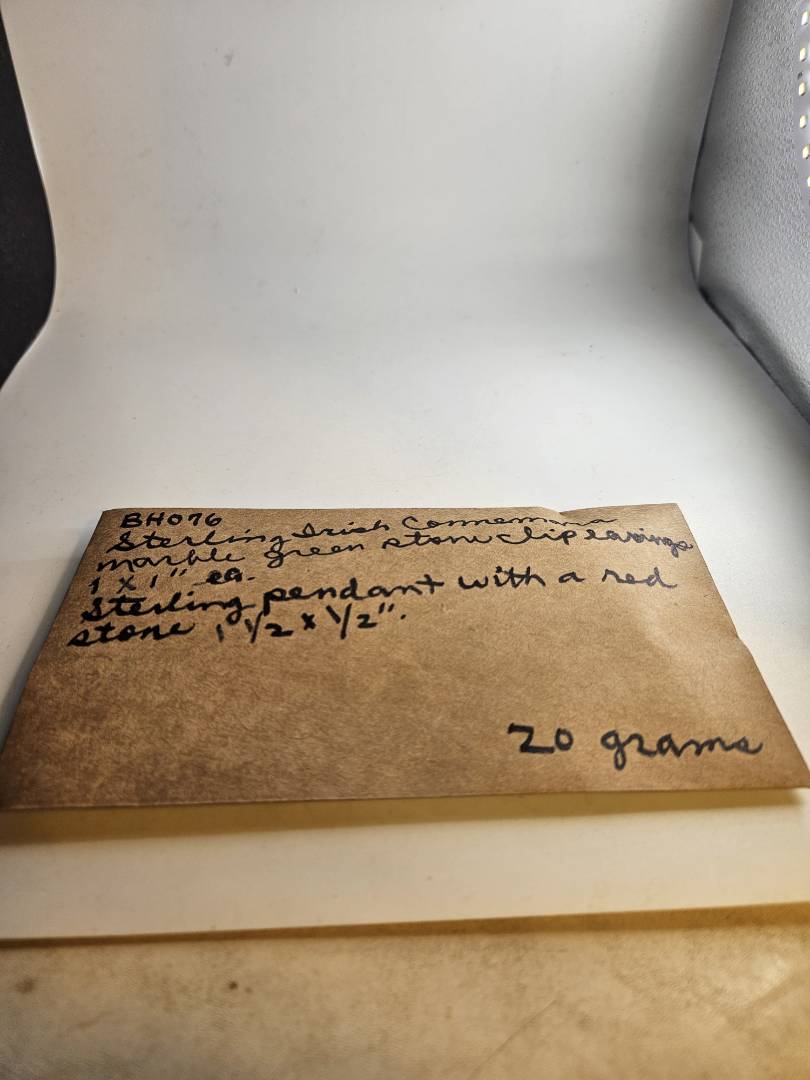 BH076
Sterling Irish Connemara
marble green stone clip earings
1 x 1" ea.
Sterling pendant with a red
stone 1 1/2 x 1/2".
20 grams